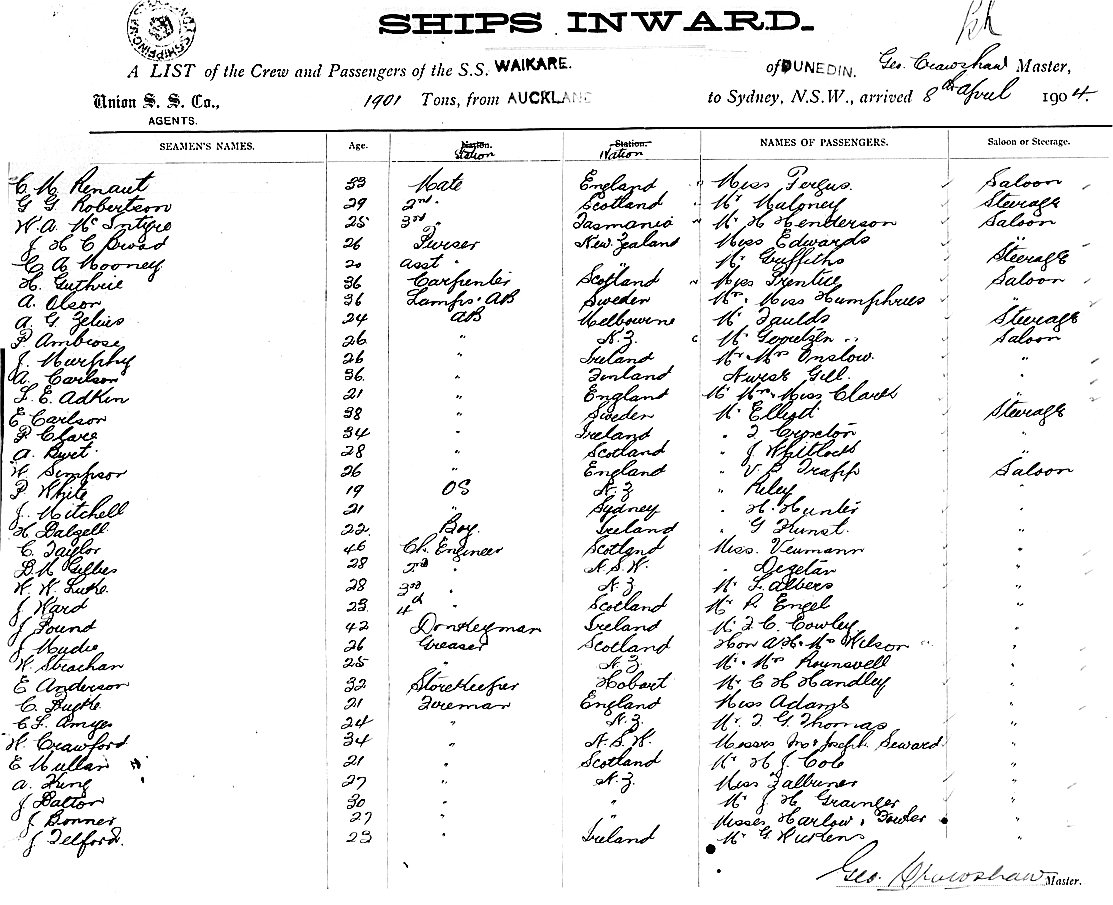 SHIPS INWARD.
A LIST of the Crew and Passengers of the S.S. WAIKARE. of DUNEDIN, Geo. Crawshaw Master,
Union S. S. Co., 1901 Tons, from AUCKLAND to Sydney, N.S.W., arrived 8th April 1904.
AGENTS.
SEAMEN'S NAMES. Age. Nation. Station Station. Nation NAMES OF PASSENGERS. Saloon or Steerage.
C M Renaut 33 Mate England Miss Fergus. Saloon
G G Robertson 29 2nd " Scotland Mr Maloney Steerage
W. A. McIntyre 25 3rd " Tasmania Mr H Henderson Saloon
J H C Broad 26 Purser New Zealand Miss Edwards "
C A Mooney 20 asst " " Mr Griffiths Steerage
H. Guthrie 36 Carpenter Scotland Miss Prentice Saloon
A. Olson 36 Lamps. AB Sweden Mr. Miss Humphries "
A. G. 24 AB Melbourne Mr Faulds Steerage
P Ambrose 26 " N.Z. Mr Saloon
J. Murphy 26 " Ireland Mr. Mrs Onslow. "
A. Carlson 36. " Finland Nurse Gill. "
L. E. Adkin 21 " England Mr Mrs Miss Clark "
E Carlson 38 " Sweden Mr Elliott Steerage
P Clare 34 " Ireland " "
A. Burt 28 " Scotland " J Whitlock "
W Simpson 26 " England " Trapp Saloon
P White 19 OS N.Z " Riley "
J. Mitchell 21 " Sydney " H. Hunter "
H Dalzell 22. Boy. Ireland " G Kunst. "
C. Taylor 46 Ch. Engineer Scotland Miss. Neumann "
D. M Gillies 28 2nd " N.S.W. " Degetan "
W. W. Luke. 28 3rd " N.Z Mr L. Albers "
J Ward 23. 4th " Scotland Mr R. Engel "
J Pound 42 Donkeyman Ireland Mr F. C. Cowley "
J Mudie 26 Greaser Scotland Hon A. H. Mrs Wilson "
W. Strachan 25. " N.Z Mr. Mrs Rounsvell "
E Anderson 32 Storekeeper Hobart Mr C H Handley "
C. Burke 21 Fireman England Miss Adams "
C L. Amyes 24 " N.Z. Mr. F. G. Thomas "
W. Crawford 34 " N.S.W. Messrs Joseph. Seward. "
E Mullan 21 " Scotland Mr H J Cole "
A. King 27 " N.Z. Miss Falbriner "
J Dalton 30 " " Mr J H Grainger "
J Bonner 27 " " Misses Harlow, Fowler "
J Telford. 23 " Ireland Mr G "
Geo. Crawshaw Master.